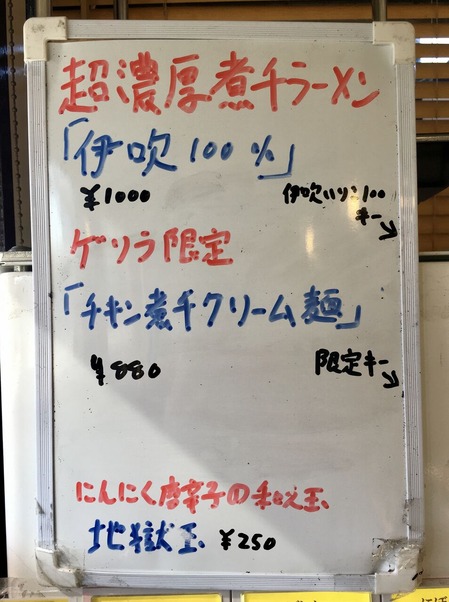 超濃厚煮干ラーメン
「伊吹100%」
¥1000
伊吹いりこ100
キー
ゲリラ限定
「チキン煮干クリーム麺」
¥880
限定キー
にんにく唐辛子の和え玉
地獄玉 ¥250